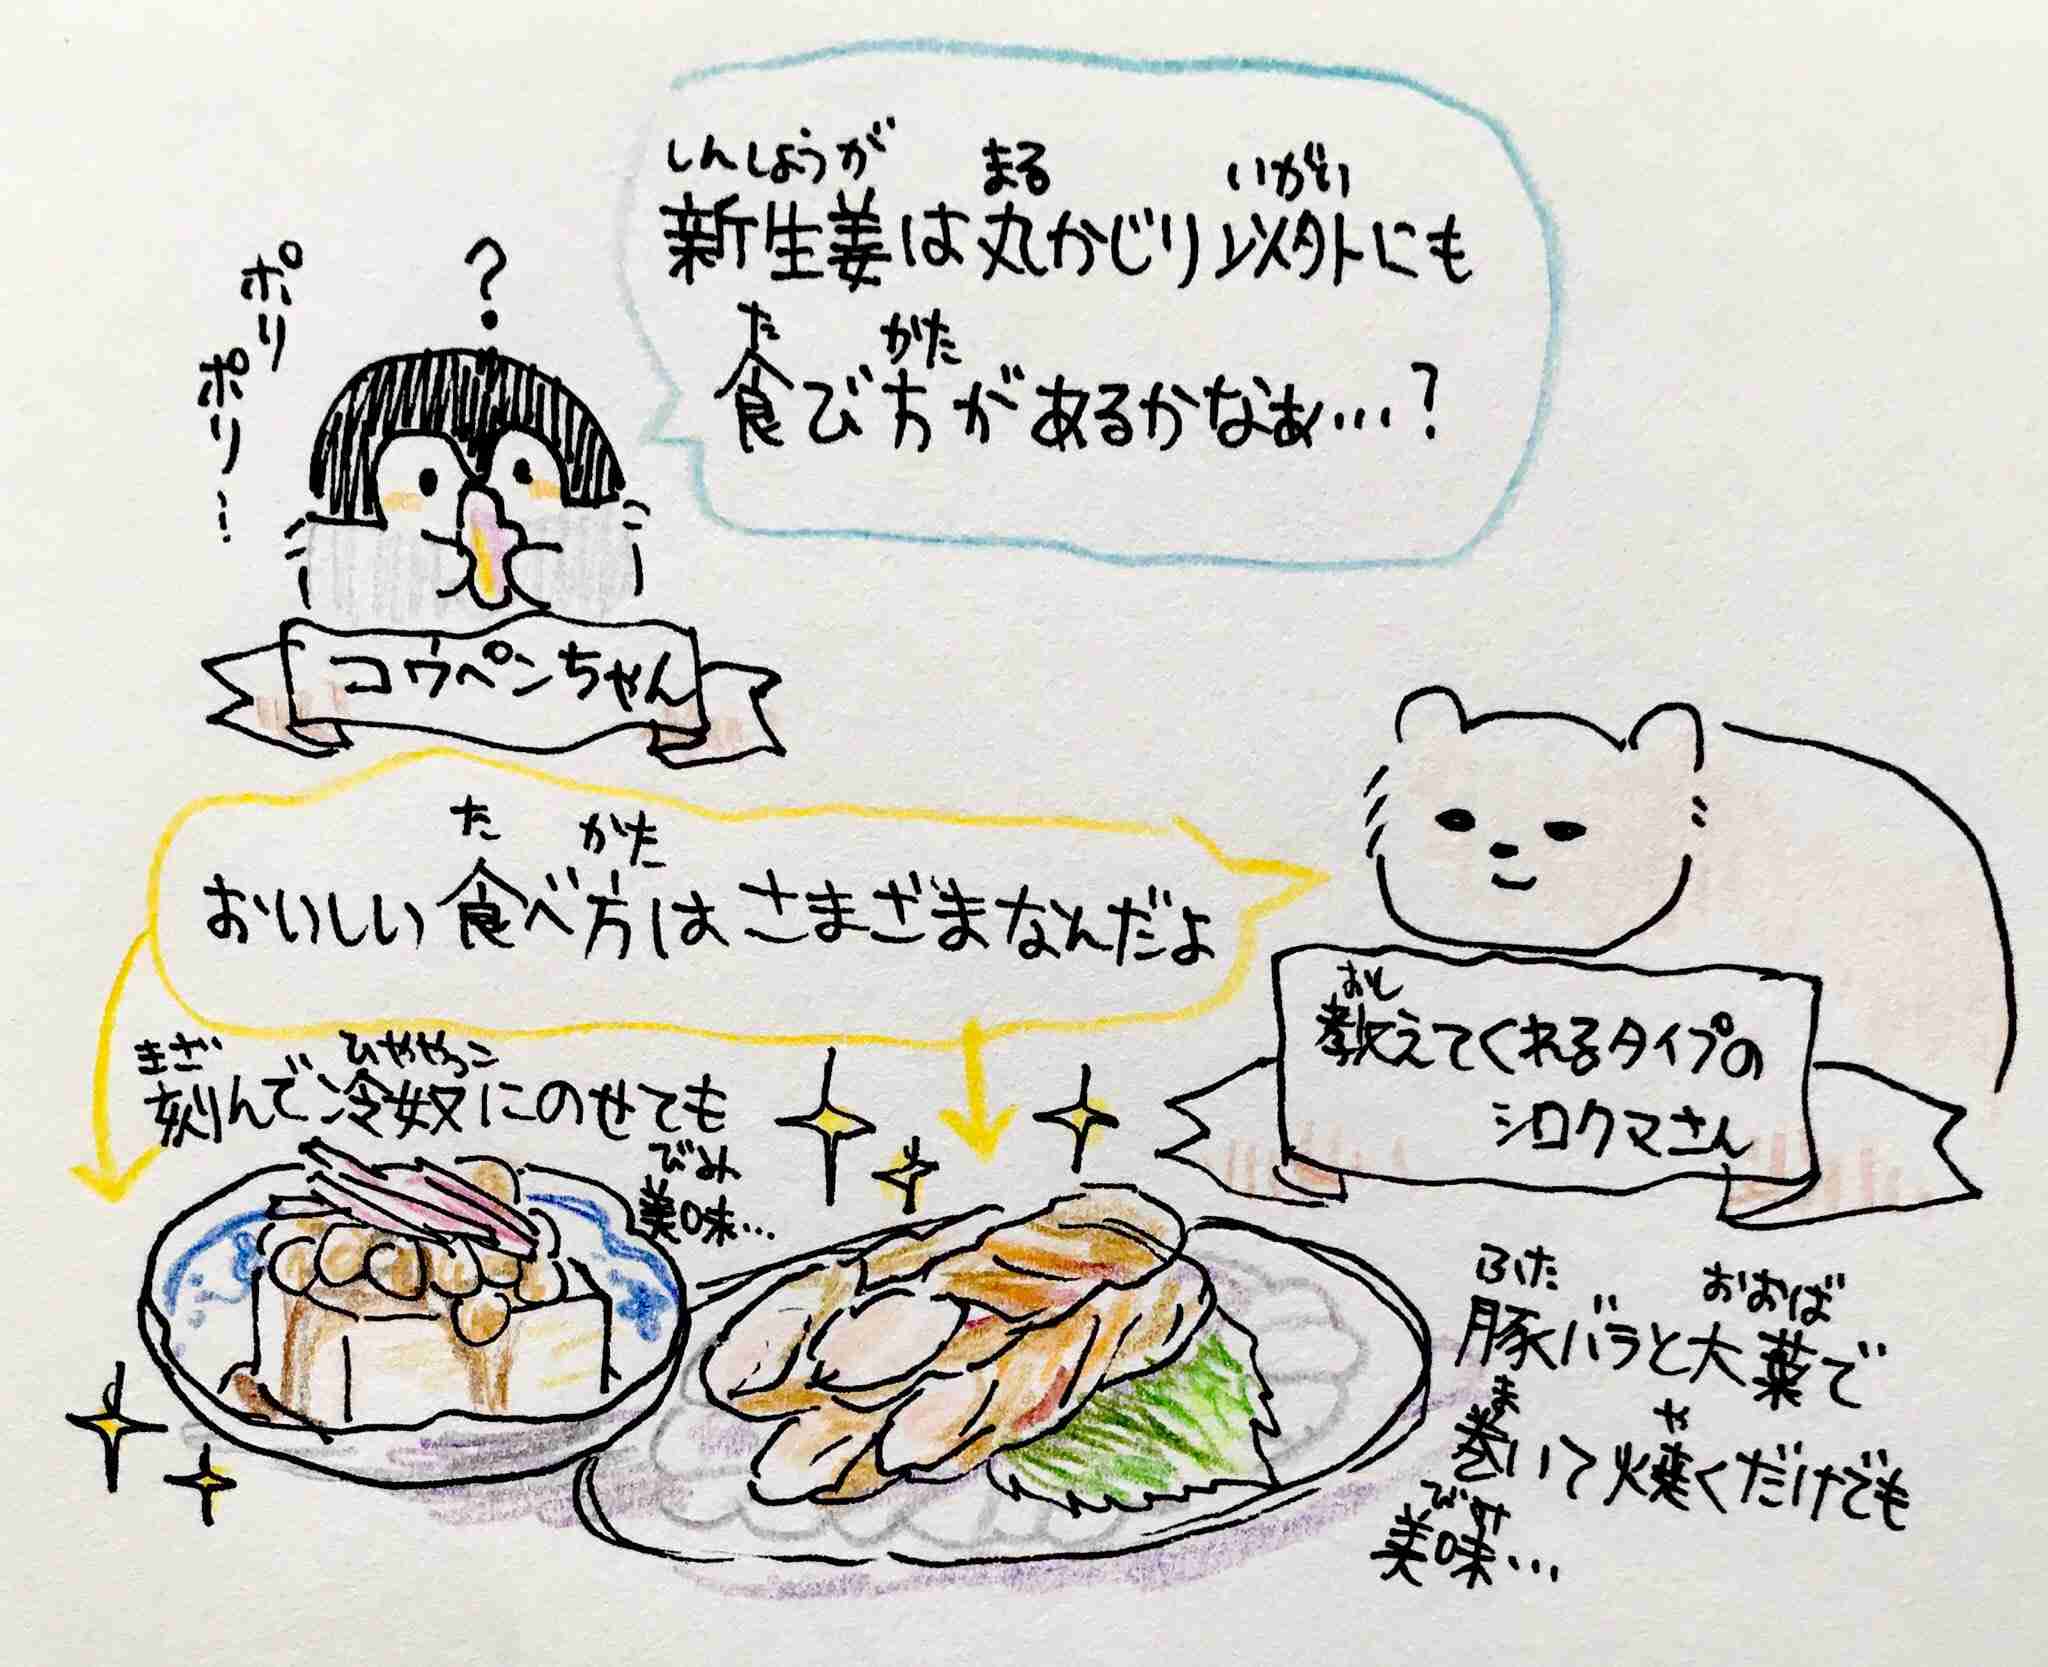 しんしょうが まる いがい
新生姜は丸かじり以外にも
た かた
食び方があるかなぁ…?
?
ポリ
ポリ…
コウペンちゃん
た かた
おいしい食べ方はさまざまなんだよ
おし
教えてくれるタイプの
シロクマさん
きざ ひややっこ
刻んで冷奴にのせても
びみ
美味…
ぶた おおば
豚バラと大葉で
ま や
巻いて焼くだけでも
びみ
美味…